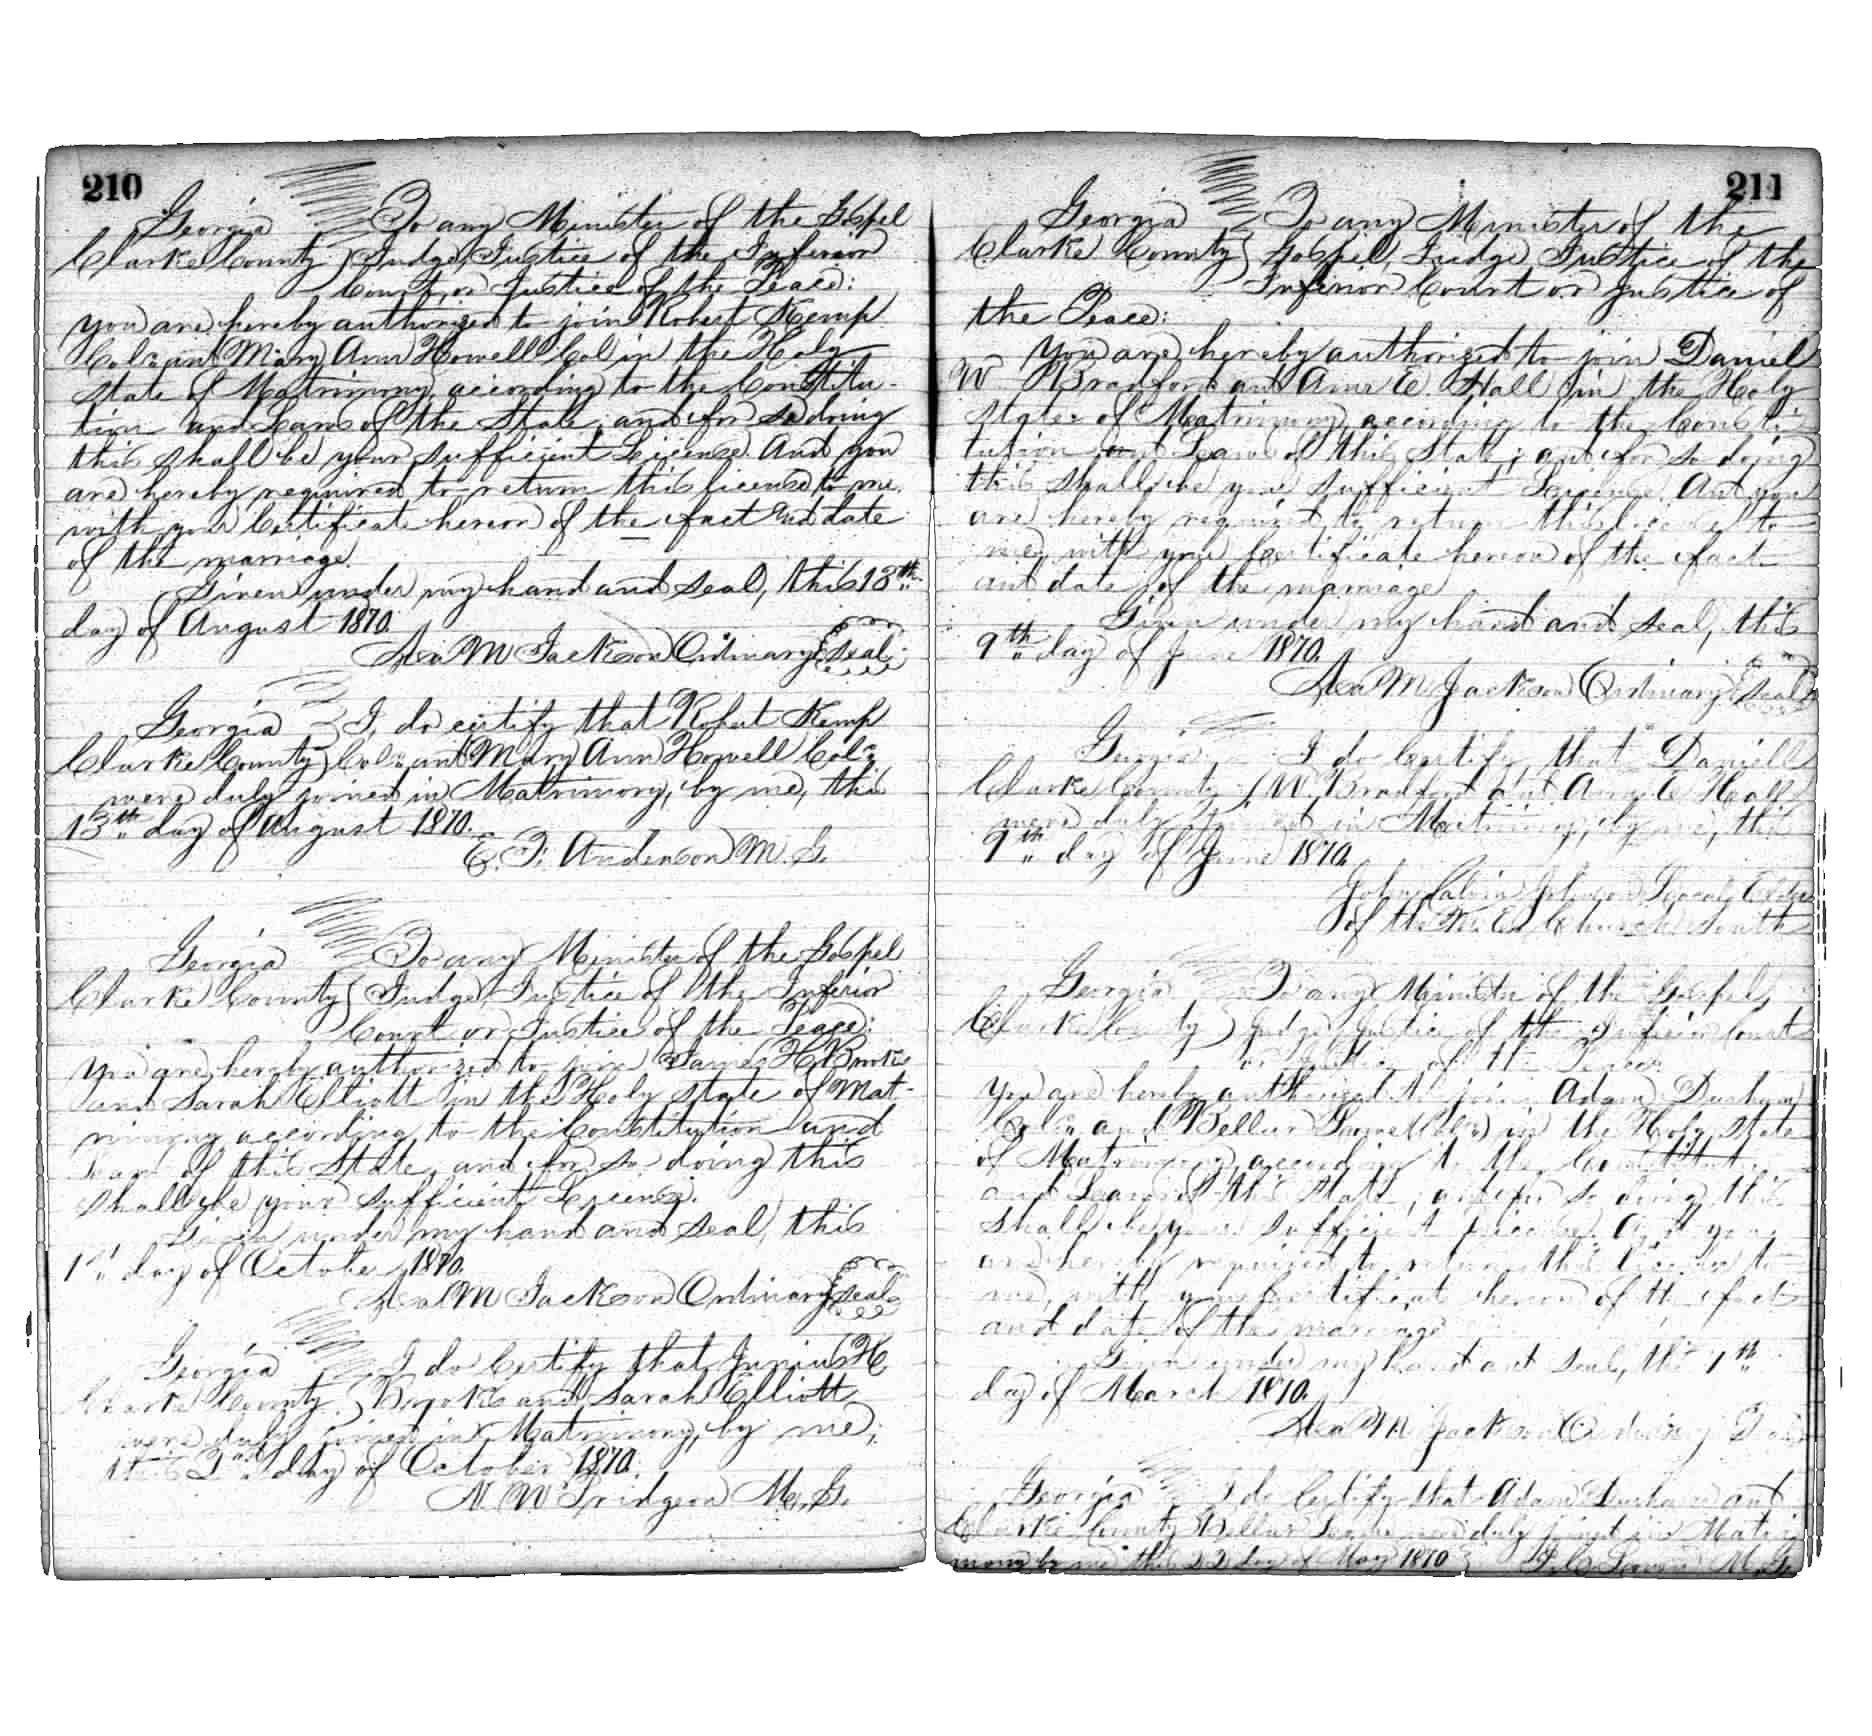 210
Georgia To any Minister of the Gospel
Clarke County Judge, Justice of the Inferior
Court, or Justice of the Peace:
you are hereby authorized to join Robert Kemp
Col. and Mary Ann Howell Col in the Holy
state of Matrimony, according to the Constitu-
tion and Laws of the State, and for so doing
this shall be your sufficient License. And you
are hereby required to return this license to me,
with your Certificate hereon of the fact and date
of the marriage.
Given under my hand and seal, this 13th
day of August 1870.
Asa M Jackson Ordinary seal
Georgia I, do certify that Robert Kemp
Clarke County Col. and Mary Ann Howell Col.
were duly joined in Matrimony, by me, this
13th day of August 1870.
E. T. Anderson M. G.
Georgia To any Minister of the Gospel
Clarke County Judge, Justice of the Inferior
Court or Justice of the Peace:
you are hereby authorized to join James H Brooks
and Sarah Elliott in the Holy state of Mat-
rimony according to the Constitution and
Laws of this State, and for so doing this
shall be your sufficient License.
Given under my hand and seal, this
1st day of October 1870.
Asa M Jackson Ordinary seal
Georgia I do Certify that Junius H
Clarke County. Brooks and Sarah Elliott
were duly joined in Matrimony, by me,
this 2nd day of October 1870.
N. W. Pridgeon M. G.
211
Georgia To any Minister of the
Clarke County Gospel, Judge Justice of the
Inferior Court or Justice of
the Peace:
You are hereby authorized to join Daniel
W Bradford and Ann E. Hall in the Holy
state of Matrimony, according to the Consti
tution and Laws of this State; and for so doing
this shall be your sufficient License. And you
are hereby required to return this license to
me, with your Certificate hereon of the fact
and date of the marriage
Given under my hand and seal, this
9th day of June 1870.
Asa M Jackson Ordinary seal
Georgia I do Certify that Daniell
Clarke County W. Bradford and Ann E Hall
were duly joined in Matrimony, by me, this
9th day of June 1870.
John Calvin Johnson Local Elder
of the M. E. Church South
Georgia To any Minister of the Gospel,
Clarke County Judge Justice of the Inferior Court
or Justice of the Peace:
You are hereby authorized to join Adam Durham
Col. and Bellur (Col.) in the Holy State
of Matrimony, according to the Constitution
and Laws of this State; and for so doing this
shall be your sufficient license. And you
are hereby required to return this license to
me, with your Certificate hereon of the fact
and date of the marriage
Given under my hand and seal, the 7th
day of March 1870.
Asa M. Jackson Ordinary Seal
Georgia I do Certify that Adam Durham and
Clarke County Bellur were duly joined in Matri
mony by me this 22 day of May 1870 M. G.